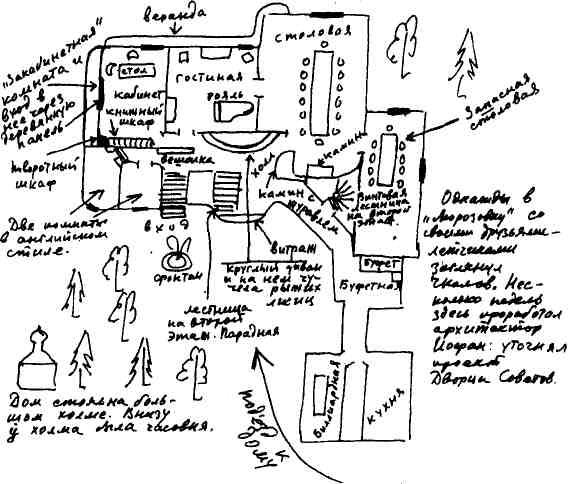 веранда
"Закабинетная"
комната и
вход в
нее через
деревянную
панель
стол
кабинет
книжный
шкаф
гостиная
рояль
столовая
Запасная
столовая
творотный
шкаф
вешалка
холл
камин
камин с
журавлем
Винтовая
лестница
на второй
этаж
Две комнаты
в английском
стиле.
вход
фронтон
витраж
Круглый диван
и на нем чу-
чела рыжих
лисиц
лестница
на второй
этаж. Парадная
буфет
Буфетная
Однажды в
"Морозовку" со
своими друзьями-
летчиками
заглянул
Чкалов. Нес-
колько недель
здесь проработал
архитектор
Иофан: уточнял
проект
Дворца Советов.
Бильярдная
кухня
подъезд к
дому
Дом стоял на боль-
шом холме. Внизу
у холма была часовня.